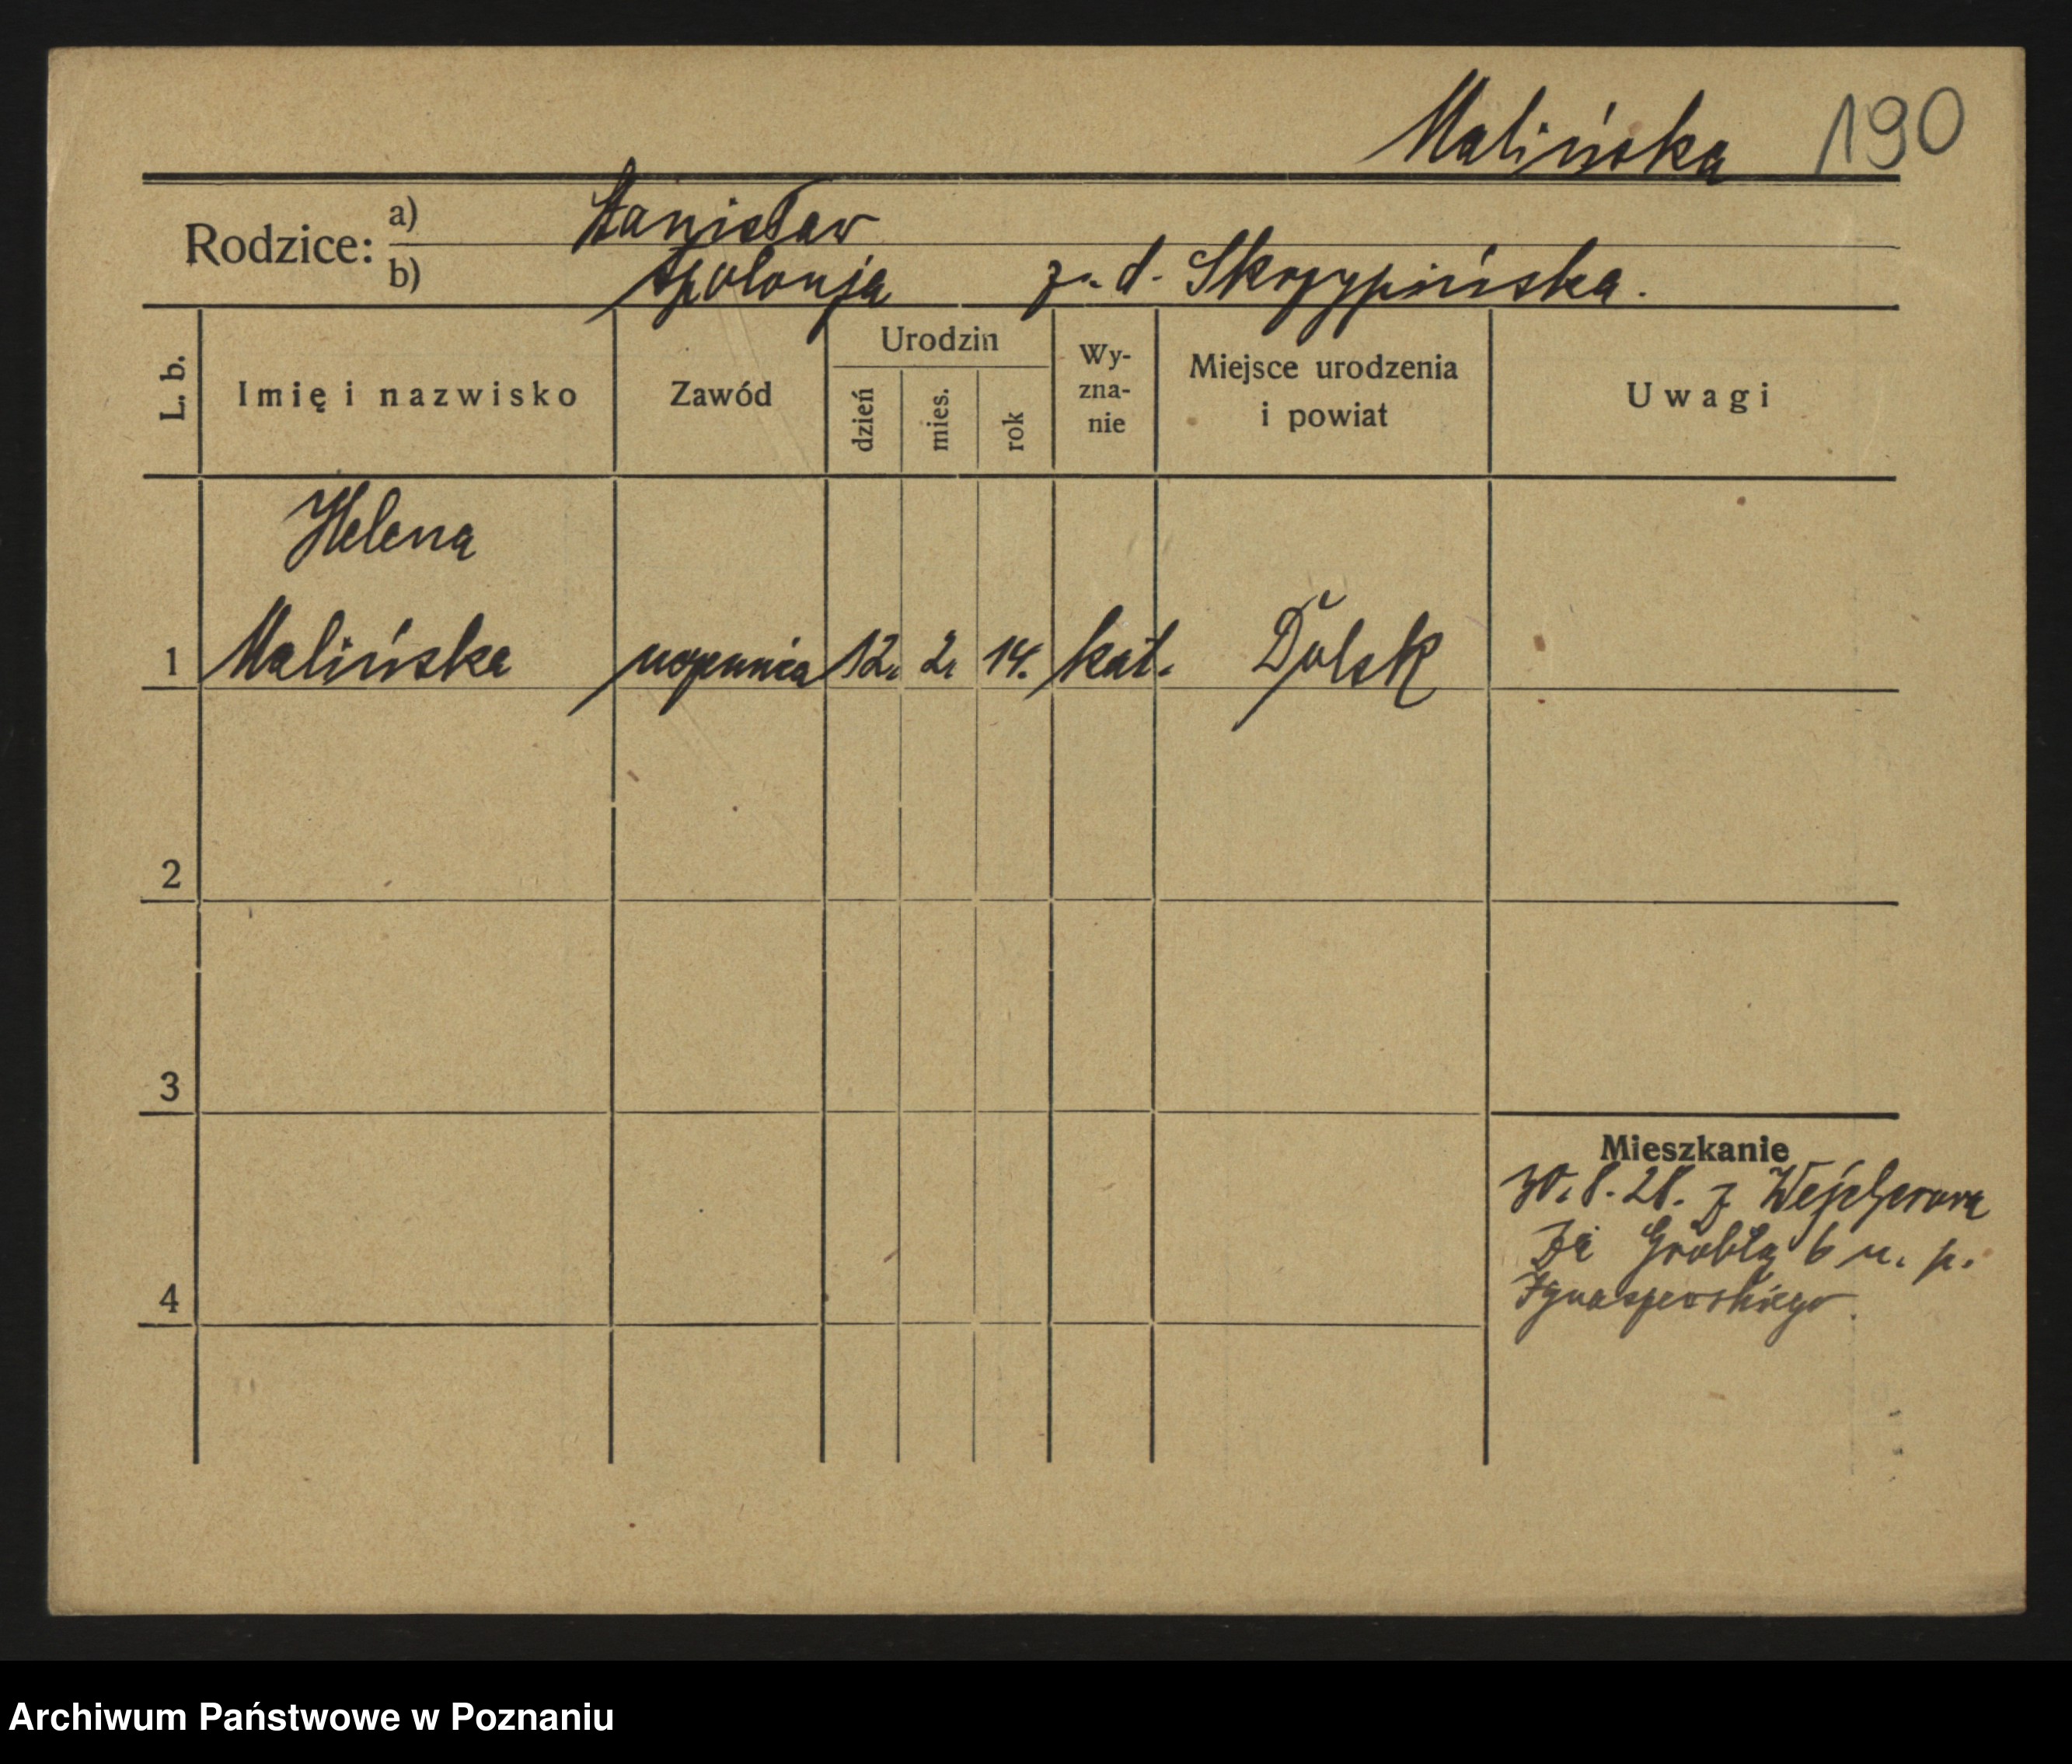 Malińska 190
Rodzice: a) Stanisław
b) Apolonja z. d. Skrzypińska.
L. b. Imię i nazwisko Zawód Urodzin dzień mies. rok Wyznanie Miejsce urodzenia i powiat Uwagi
Helena
1 Malińska uczennica 12. 2. 14. kat. Dolsk
2
3
Mieszkanie
30. 8. 28. z Wejcherowa
Za Groblą 6 u. p.
4
Archiwum Państwowe w Poznaniu